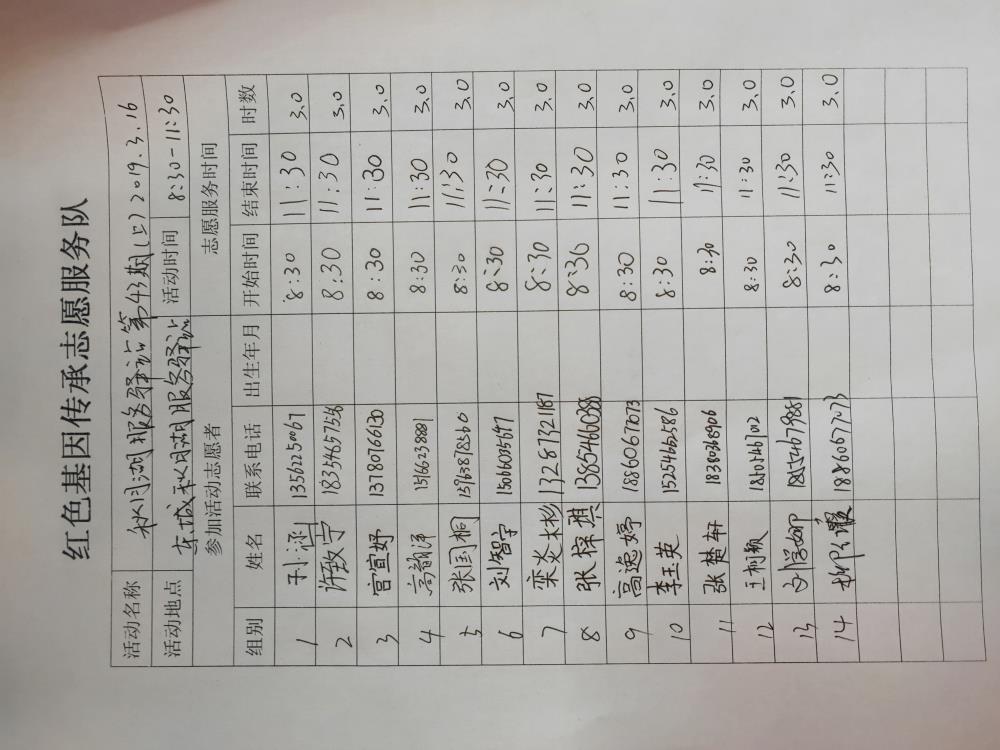 红色基因传承志愿服务队
活动名称 秋月湖服务驿站第43期(上) 2019.3.16
活动地点 东城秋月湖服务驿站 活动时间 8:30-11:30
参加活动志愿者 志愿服务时间
组别 姓名 联系电话 出生年月 开始时间 结束时间 时数
1 13562250067 8:30 11:30 3.0
2 许致宁 18354657556 8:30 11:30 3.0
3 宫宜妤 13780766130 8:30 11:30 3.0
4 高韵洋 15166238881 8:30 11:30 3.0
5 张国桐 15963878560 8:30 11:30 3.0
6 刘智宇 15066035647 8:30 11:30 3.0
7 栾炎木杉 13287321187 8:30 11:30 3.0
8 张梓琪 13854660388 8:30 11:30 3.0
9 高逸婷 18860677673 8:30 11:30 3.0
10 李玉英 15254662586 8:30 11:30 3.0
11 张楚轩 18380368906 8:30 11:30 3.0
12 王柯颖 8:30 11:30 3.0
13 8:30 11:30 3.0
14 18860677703 8:30 11:30 3.0